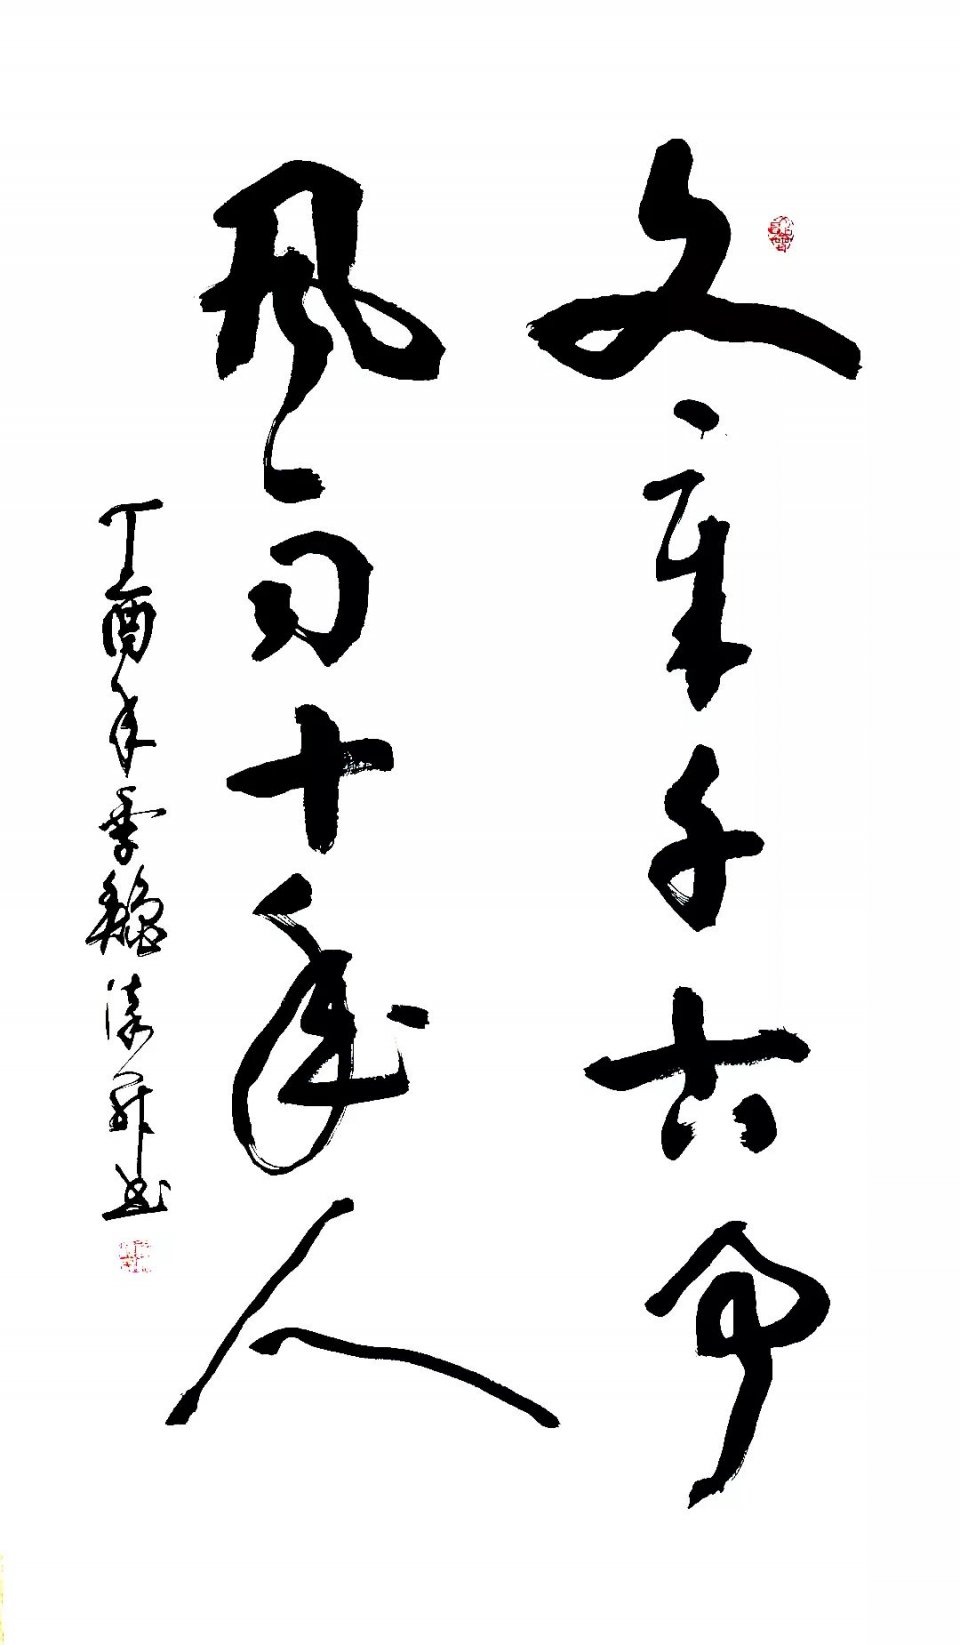 文章千古事
风雨十年人
丁酉年季龝书